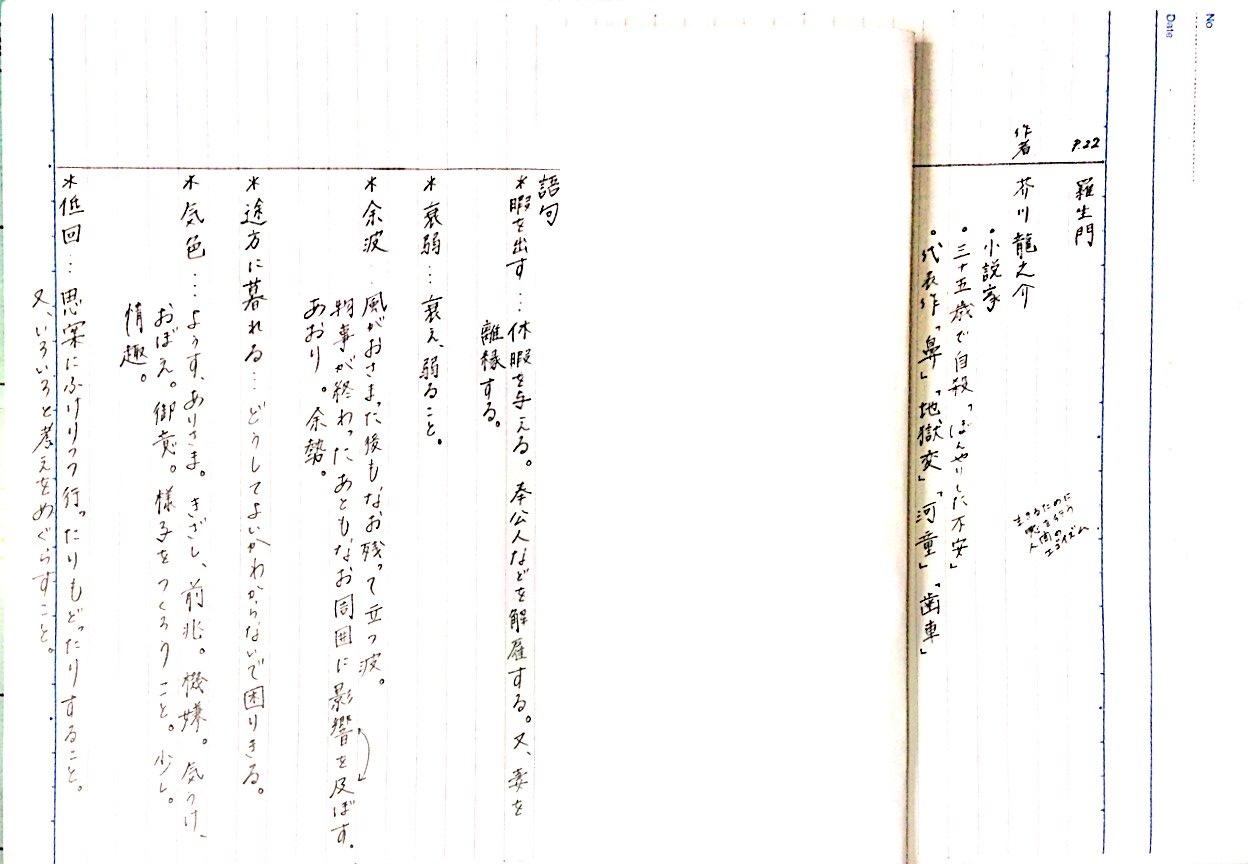 No
Date
P.22
羅生門
作者
芥川龍之介
生きるために
悪を行う
人間の
エゴイズム
・小説家
・三十五歳で自殺「ぼんやりした不安」
・代表作「鼻」「地獄変」「河童」「歯車」
語句
*暇を出す…休暇を与える。奉公人などを解雇する。又、妻を
離縁する。
*衰弱…衰え、弱ること。
*余波…風がおさまった後もなお残って立つ波。
物事が終わったあともなお周囲に影響を及ぼす。
あおり。余勢。
*途方に暮れる…どうしてよいかわからないで困りきる。
*気色…ようす、ありさま。きざし、前兆。機嫌。気うけ、
おぼえ。御意。様子をつくろうこと。少し。
情趣。
*低回…思案にふけりつつ行ったりもどったりすること。
又、いろいろと考えをめぐらすこと。